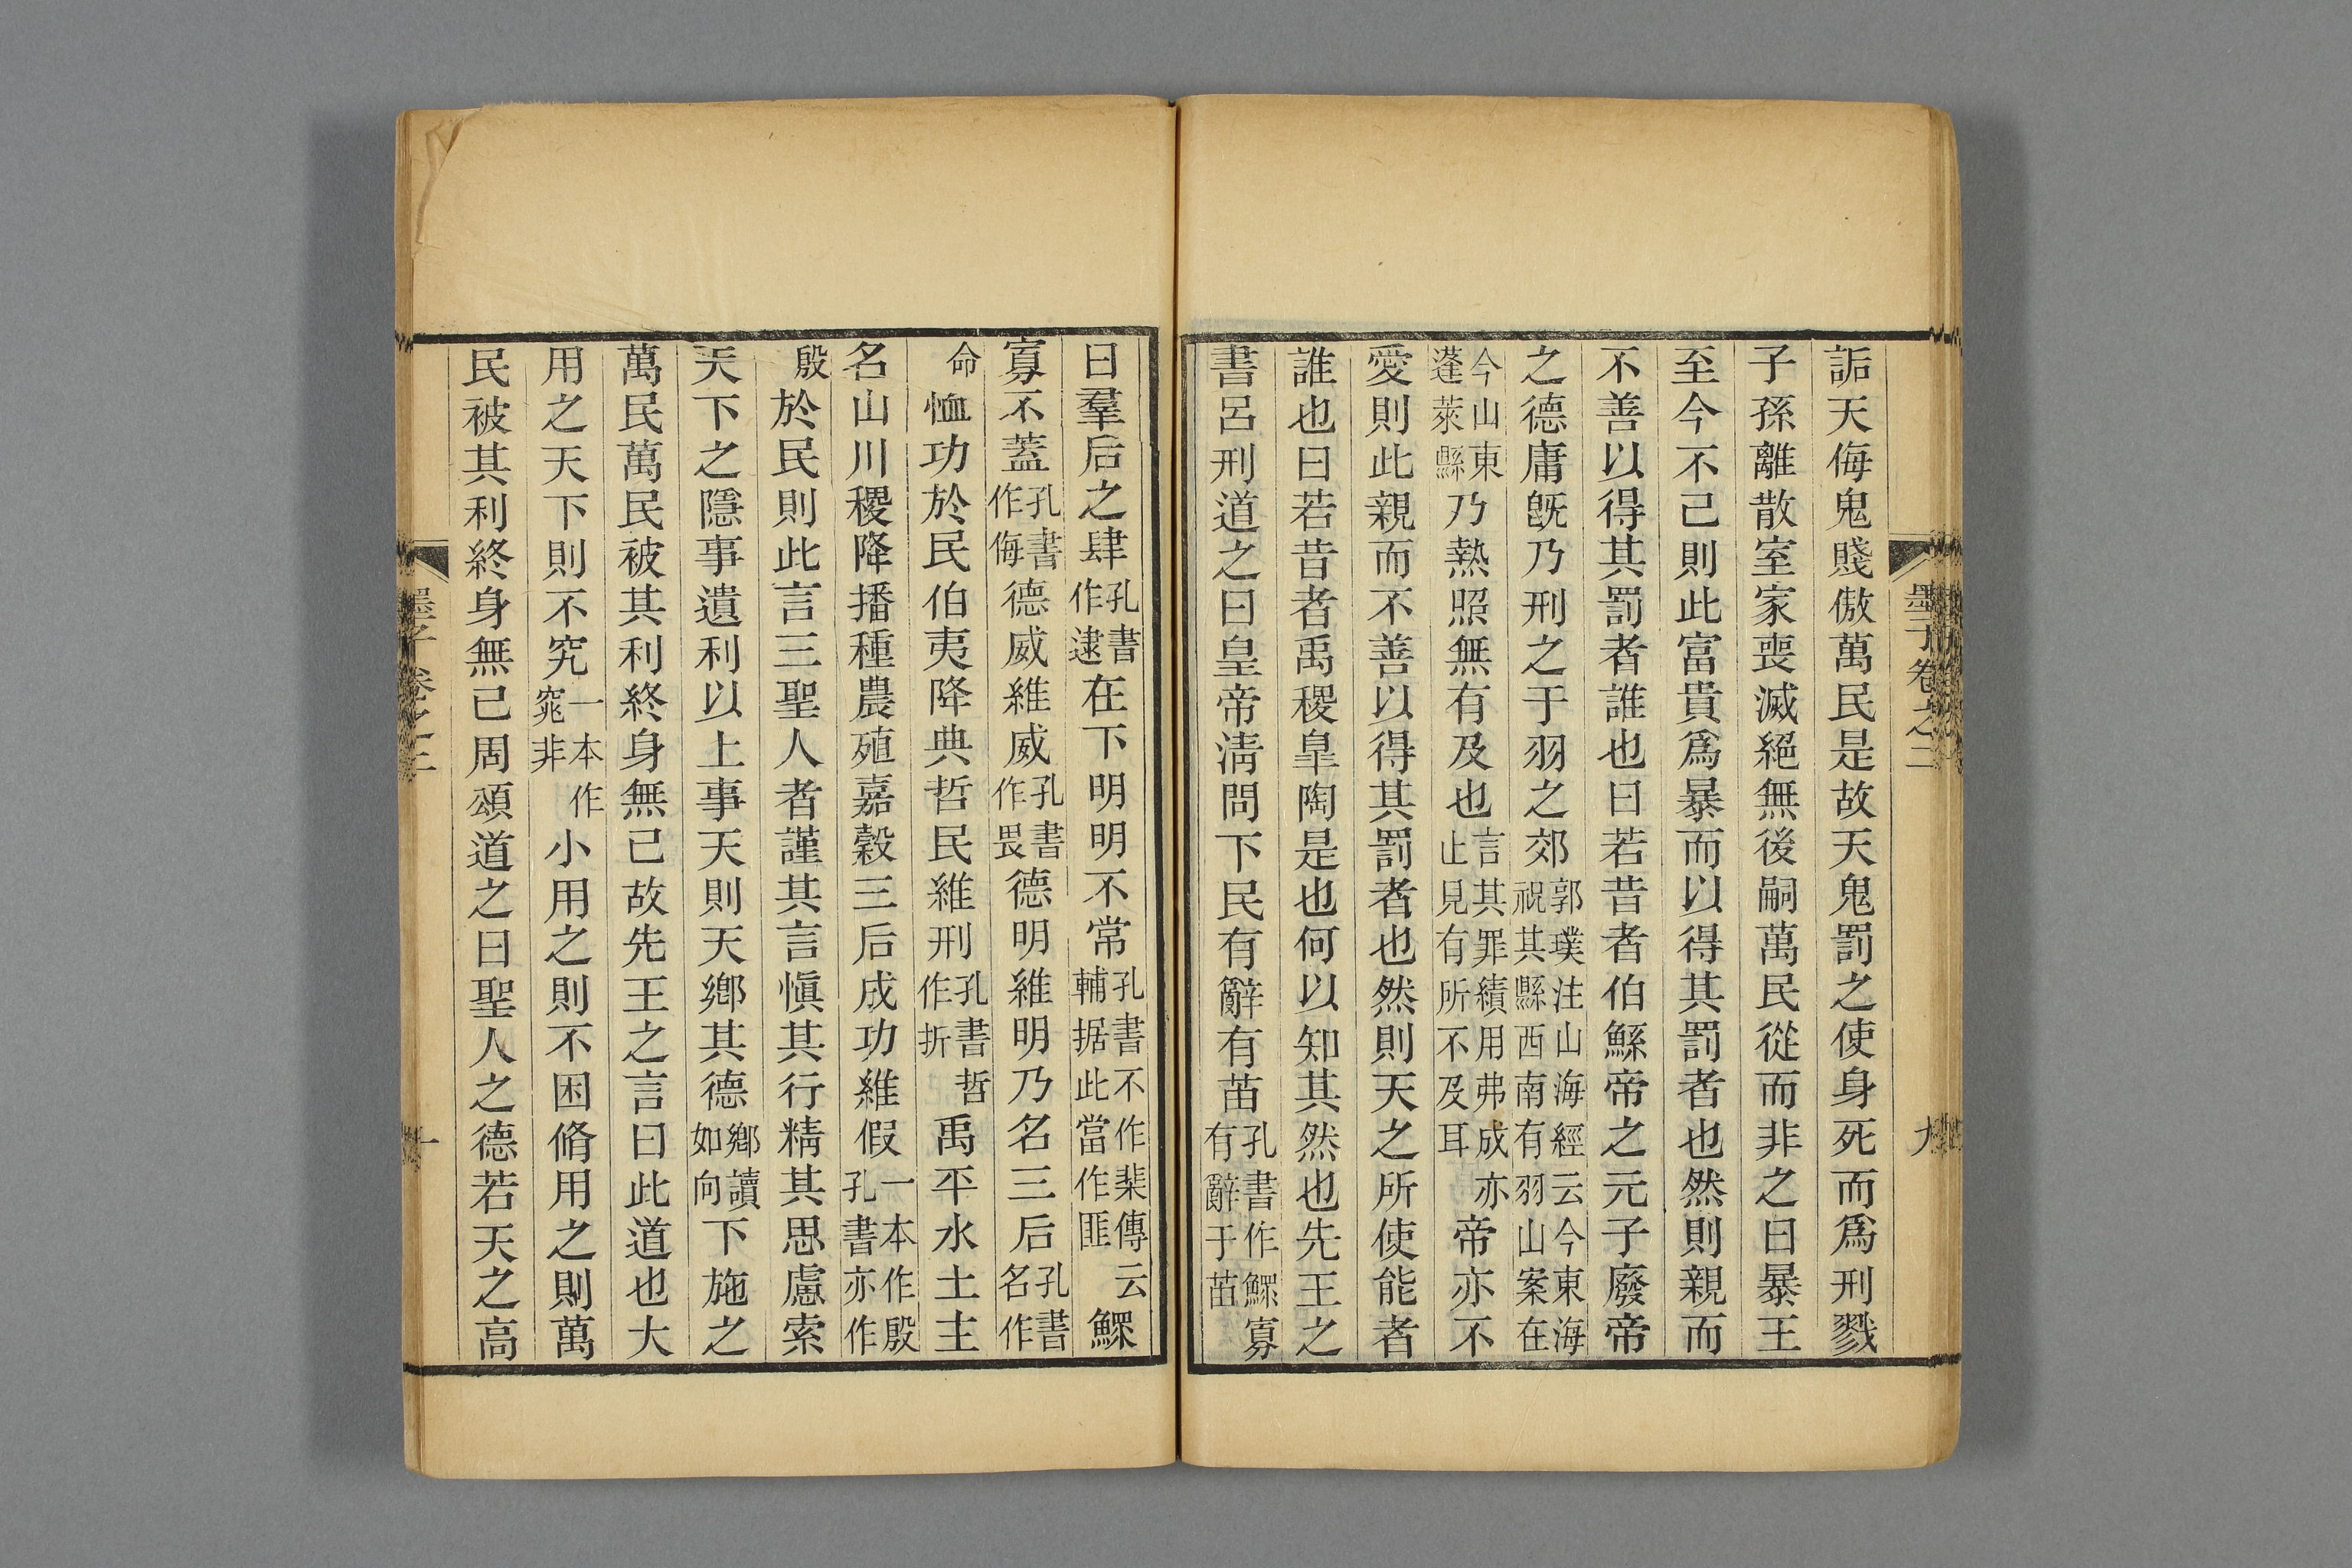 墨子卷之二
九
詬天侮鬼賤傲萬民是故天鬼罰之使身死而爲刑戮
子孫離散室家喪滅絕無後嗣萬民從而非之曰暴王
至今不已則此富貴爲暴而以得其罰者也然則親而
不善以得其罰者誰也曰若昔者伯鯀帝之元子廢帝
之德庸旣乃刑之于羽之郊郭璞注山海經云今東海祝其縣西南有羽山案在
今山東蓬萊縣乃熱照無有及也言其罪績用弗成亦止見有所不及耳帝亦不
愛則此親而不善以得其罰者也然則天之所使能者
誰也曰若昔者禹稷臯陶是也何以知其然也先王之
書呂刑道之曰皇帝淸問下民有辭有苗孔書作鰥寡有辭于苗
曰羣后之肆孔書作逮在下明明不常孔書不作棐傳云輔据此當作匪鰥
寡不蓋孔書作侮德威維威孔書作畏德明維明乃名三后孔書名作
命恤功於民伯夷降典哲民維刑孔書哲作折禹平水土主
名山川稷降播種農殖嘉穀三后成功維假一本作殷孔書亦作
殷於民則此言三聖人者謹其言愼其行精其思慮索
天下之隱事遺利以上事天則天鄕其德鄕讀如向下施之
萬民萬民被其利終身無已故先王之言曰此道也大
用之天下則不究一本作窕非小用之則不困脩用之則萬
民被其利終身無已周頌道之曰聖人之德若天之高
墨子卷之二
十